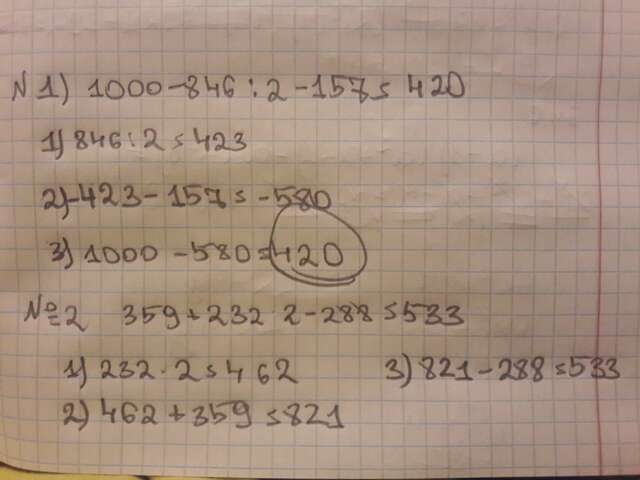 N 1) 1000-846:2-157= 420
1) 846:2=423
2) -423-157=-580
3) 1000-580=420
№2 359+232·2-288=533
1) 232·2=462 3) 821-288=533
2) 462+359=821